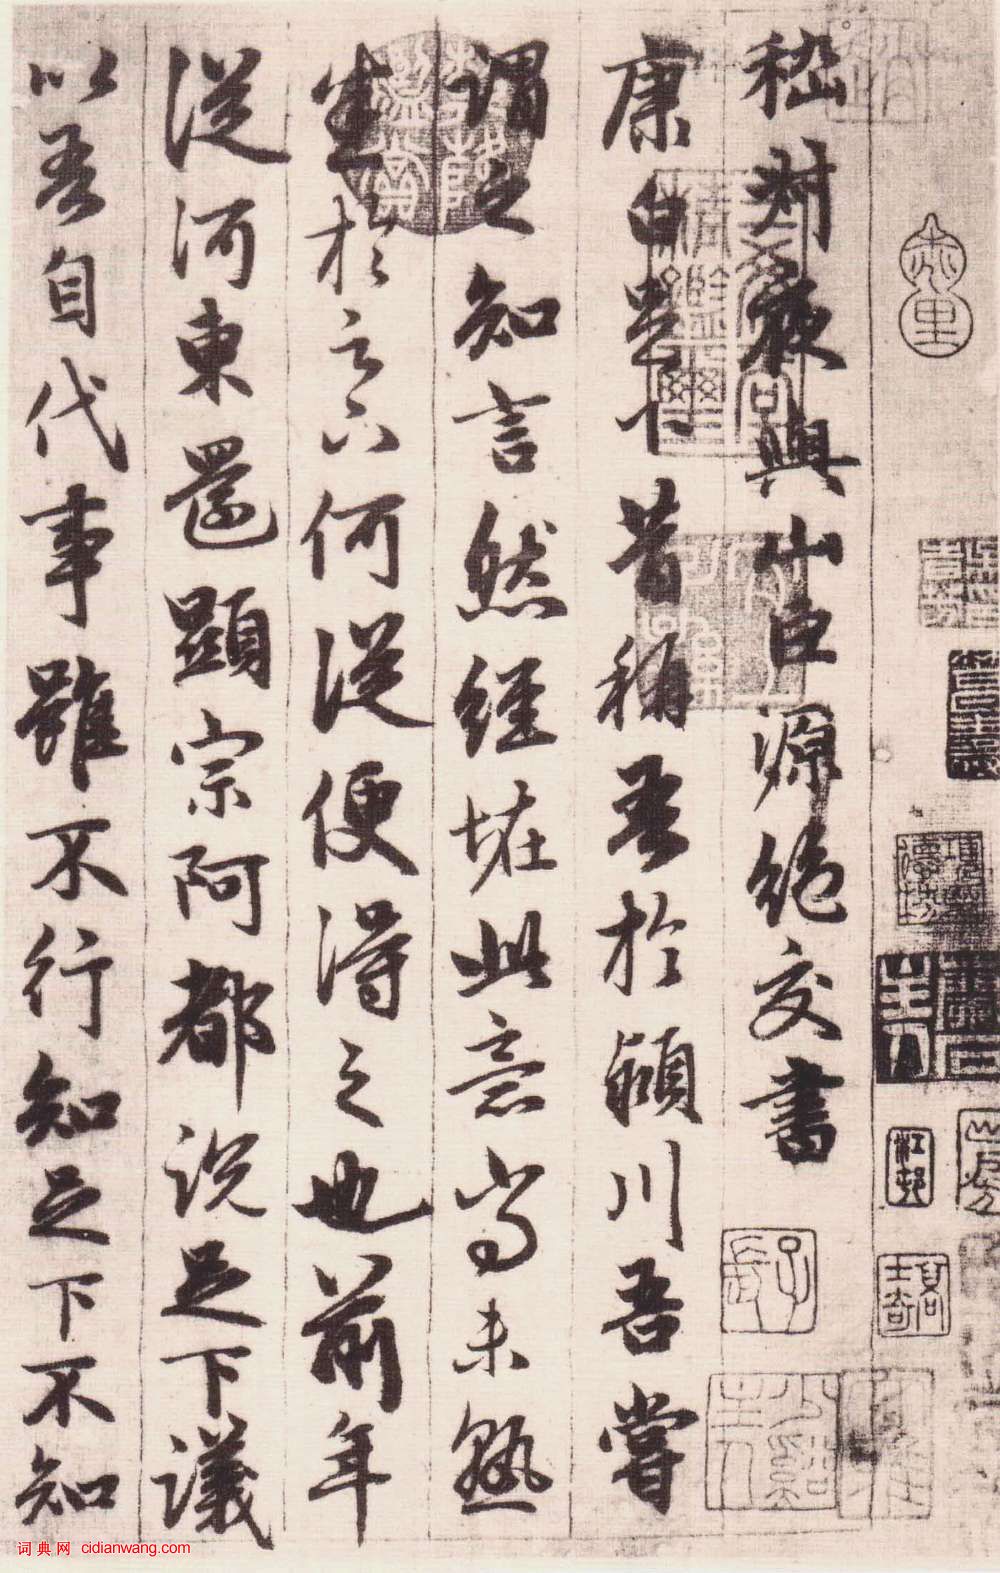 嵇叔夜與山巨源絶交書
康白足下昔稱吾於潁川吾嘗
謂之知言然經怪此意尚未熟
悉於足下何從便得之也前年
從河東還顯宗阿都說足下議
以吾自代事雖不行知足下不知
词典网 cidianwang.com